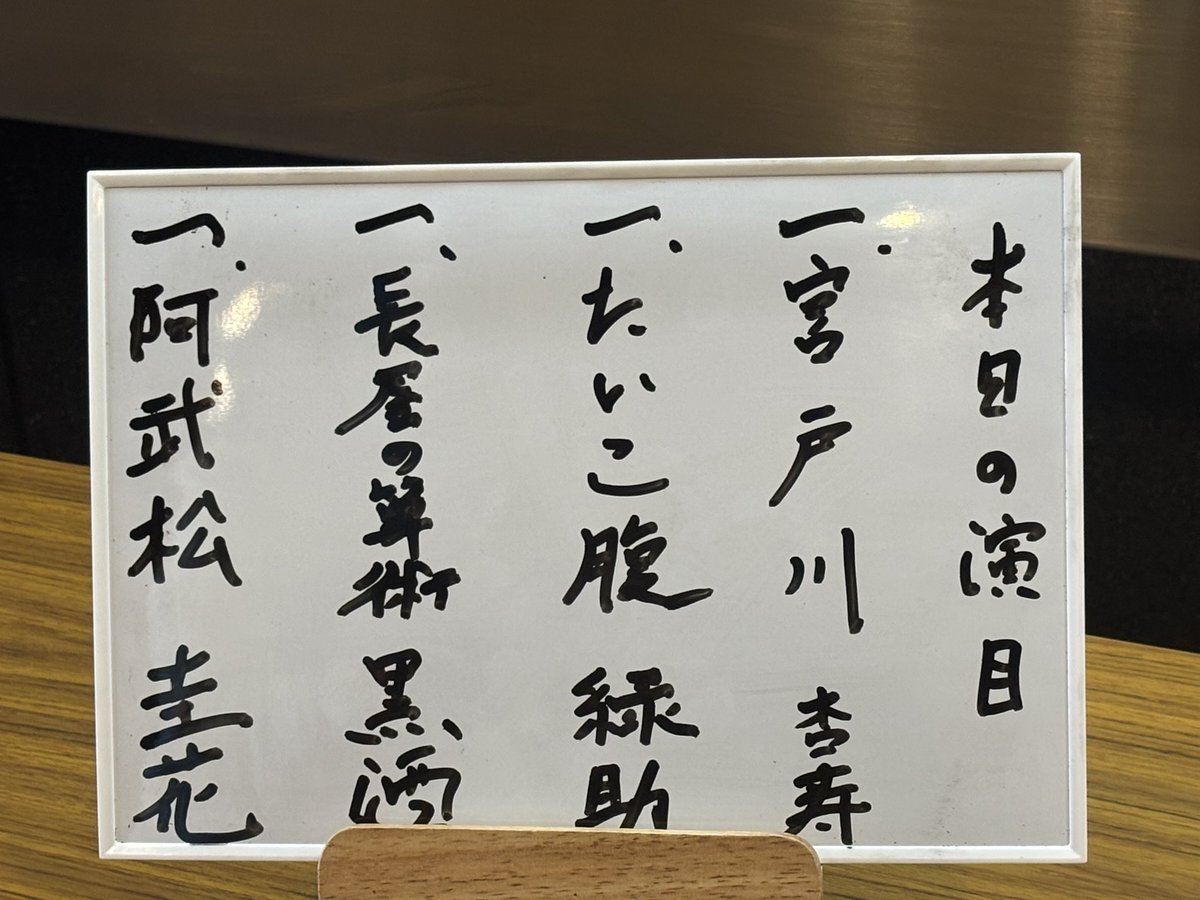 本日の演目
一、宮戸川 杏寿
一、たいこ腹 緑助
一、長屋の算術 黒酒
一、阿武松 圭花